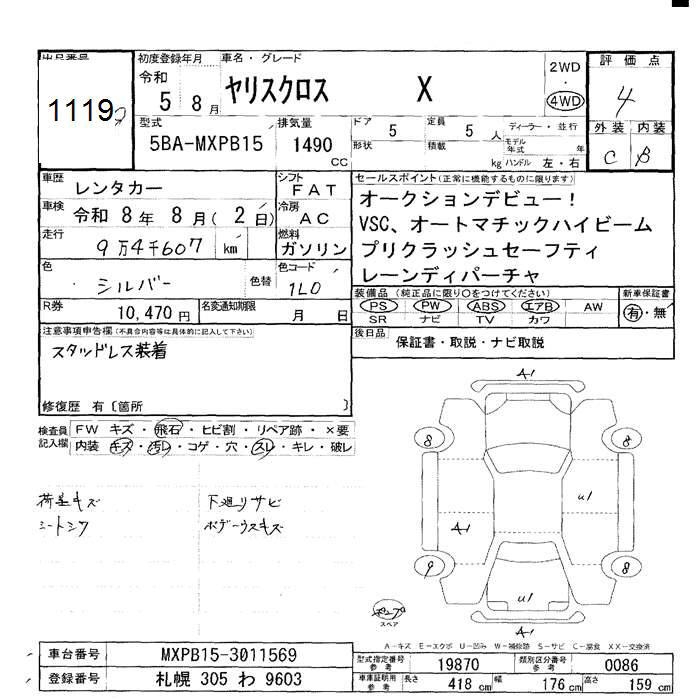 出品番号
1119
初度登録年月
令和
5 8月
車名・グレード
ヤリスクロス X
2WD
・
4WD
評価点
4
外装 内装
C B
型式
5BA-MXPB15
排気量
1490
CC
ドア
5
形状
定員
5 人
積載
kg
ディーラー・並行
モデル年式 年
ハンドル 左・右
車歴
レンタカー
シフト
FAT
車検
令和 8年 8月(2日)
冷房
AC
走行
9万4千607 km
燃料
ガソリン
色
シルバー
色替
色コード
1L0
R券
10,470円
名変通知期限
月 日
セールスポイント(正常に機能するものに限ります)
オークションデビュー!
VSC、オートマチックハイビーム
プリクラッシュセーフティ
レーンディパーチャ
装備品(純正品に限り○をつけてください)
PS PW ABS エアB AW
SR ナビ TV カワ
新車保証書
有・無
後日品
保証書・取説・ナビ取説
注意事項申告欄(不具合内容等は具体的に記入して下さい)
スタッドレス装着
修復歴 有〔箇所 〕
検査員
記入欄
FW キズ・飛石・ヒビ割・リペア跡・×要
内装・キズ・汚レ・コゲ・穴・スレ・キレ・破レ
荷室キズ
シートシワ
下廻りサビ
ボデーウスキズ
A1
8
8
A1
U1
9
8
U1
A1
スペア
A-キズ E-エクボ U-凹み W-補修跡 S-サビ C-腐食 XX-交換済
車台番号
MXPB15-3011569
登録番号
札幌 305 わ 9603
型式指定番号
参考
19870
類別区分番号
参考
0086
車庫証明用
参考
長さ
418 cm
幅
176 cm
高さ
159 cm